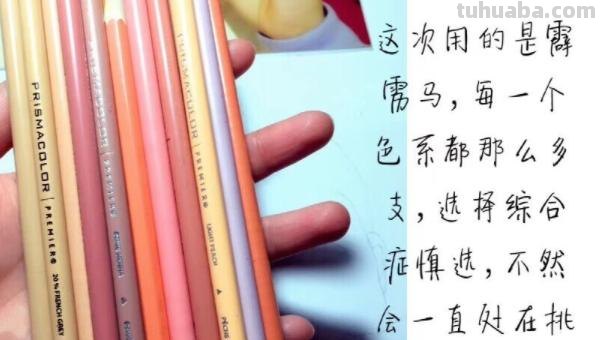 tuhuaba.com
这次用的是霹
雳马，每一个
色系都那么多
支，选择综合
症慎选，不然
会一直处在挑
PRISMACOLOR | PREMIER®
20% FRENCH GREY
PRISMACOLOR | PREMIER®
LIGHT PEACH
PÊCHE